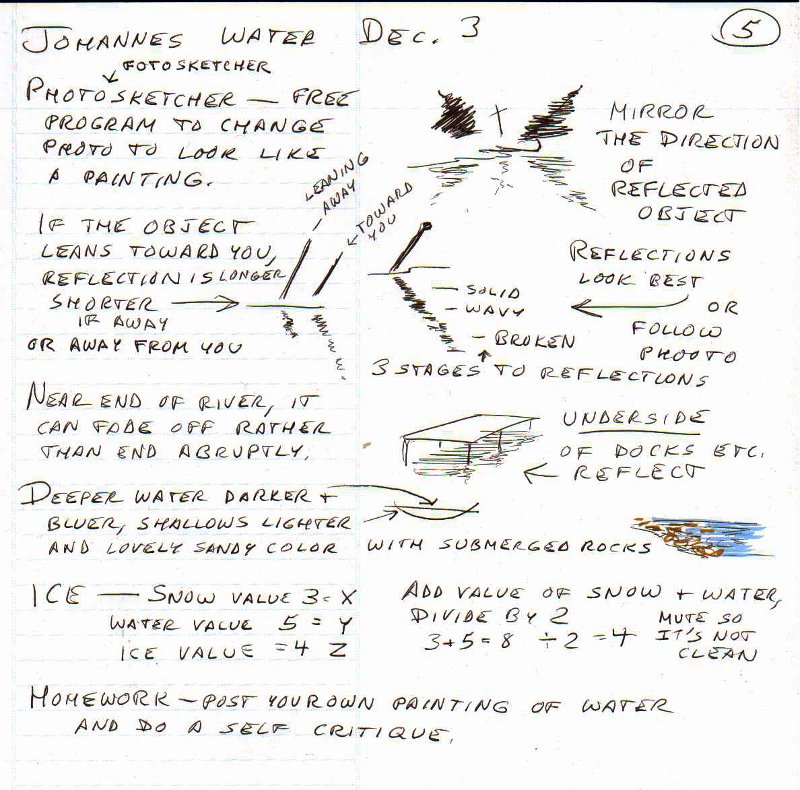 JOHANNES WATER DEC. 3 5
FOTOSKETCHER
PHOTOSKETCHER — FREE
PROGRAM TO CHANGE
PHOTO TO LOOK LIKE
A PAINTING.
MIRROR
THE DIRECTION
OF
REFLECTED
OBJECT
LEANING
AWAY
TOWARD
YOU
IF THE OBJECT
LEANS TOWARD YOU,
REFLECTION IS LONGER
SHORTER
IF AWAY
OR AWAY FROM YOU
SOLID
WAVY
BROKEN
3 STAGES TO REFLECTIONS
REFLECTIONS
LOOK BEST
OR
FOLLOW
PHOOTO
NEAR END OF RIVER, IT
CAN FADE OFF RATHER
THAN END ABRUPTLY.
UNDERSIDE
OF DOCKS ETC.
REFLECT
DEEPER WATER DARKER +
BLUER, SHALLOWS LIGHTER
AND LOVELY SANDY COLOR WITH SUBMERGED ROCKS
ICE — SNOW VALUE 3 = X
WATER VALUE 5 = Y
ICE VALUE = 4 Z
ADD VALUE OF SNOW + WATER,
DIVIDE BY 2
3+5=8 ÷2 =4
MUTE SO
IT'S NOT
CLEAN
HOMEWORK — POST YOUR OWN PAINTING OF WATER
AND DO A SELF CRITIQUE.